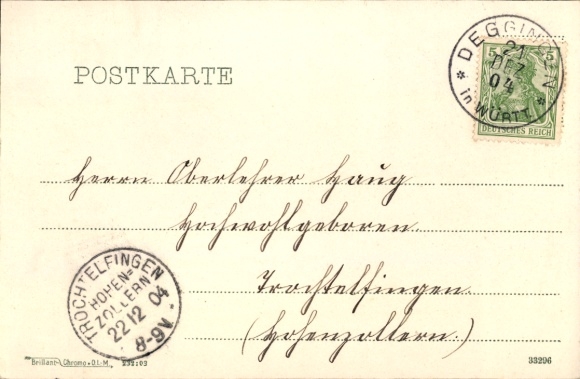 DEGGINGEN
21
DEZ
04
* in WÜRTT. *
5 5
DEUTSCHES REICH
POSTKARTE
Herrn Oberlehrer Haug
Hochwohlgeboren
Trochtelfingen
(Hohenzollern.)
TROCHTELFINGEN
HOHEN=
ZOLLERN
22 12 04
8-9V.
Brillant-Chromo-D.L-M. 232:03
33296